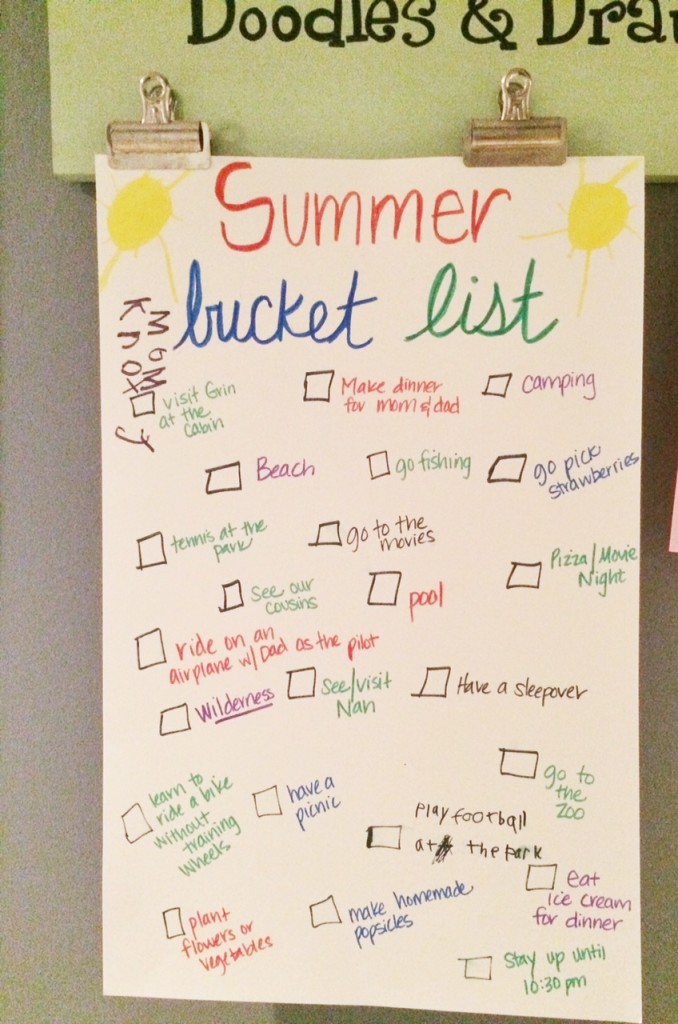 Doodles & Dra
Summer
bucket list
MoM
Knox
y
visit Grin
at the
cabin
Make dinner
for mom & dad
camping
Beach
go fishing
go pick
strawberries
tennis at the
park
go to the
movies
Pizza/Movie
Night
See our
cousins
pool
ride on an
airplane w/Dad as the pilot
Wilderness
See/visit
Nan
Have a sleepover
learn to
ride a bike
without
training
wheels
have a
picnic
go to
the
zoo
Play football
at the park
eat
ice cream
for dinner
plant
flowers or
vegetables
make homemade
popsicles
Stay up until
10:30 pm